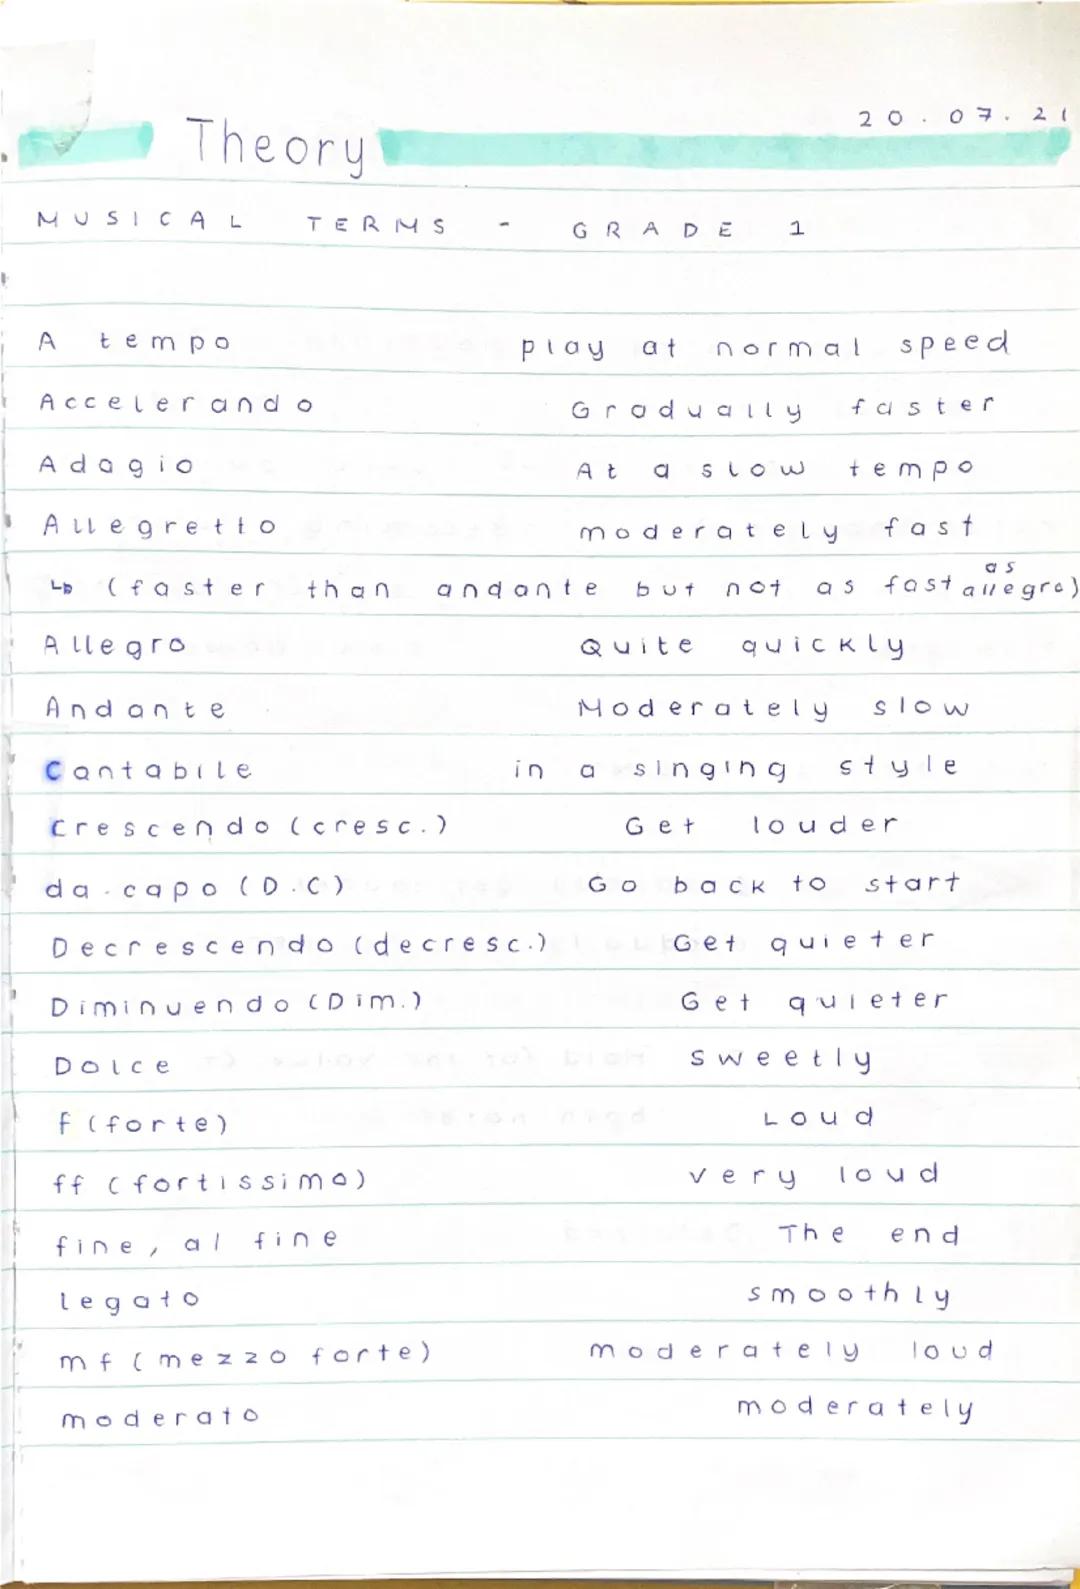 20.07.21
Theory
MUSICAL TERMS - GRADE 1
A tempo play at normal speed
Accelerando Gradually faster
Adagio At a slow tempo
Allegretto moderately fast
↳ (faster than andante but not as fast as allegro)
Allegro Quite quickly
Andante Moderately slow
Cantabile in a singing style
Crescendo (cresc.) Get louder
da.capo (D.C) Go back to start
Decrescendo (decresc.) Get quieter
Diminuendo (Dim.) Get quieter
Dolce sweetly
f (forte) Loud
ff (fortissimo) very loud
fine, al fine The end
legato smoothly
mf (mezzo forte) moderately loud
moderato moderately